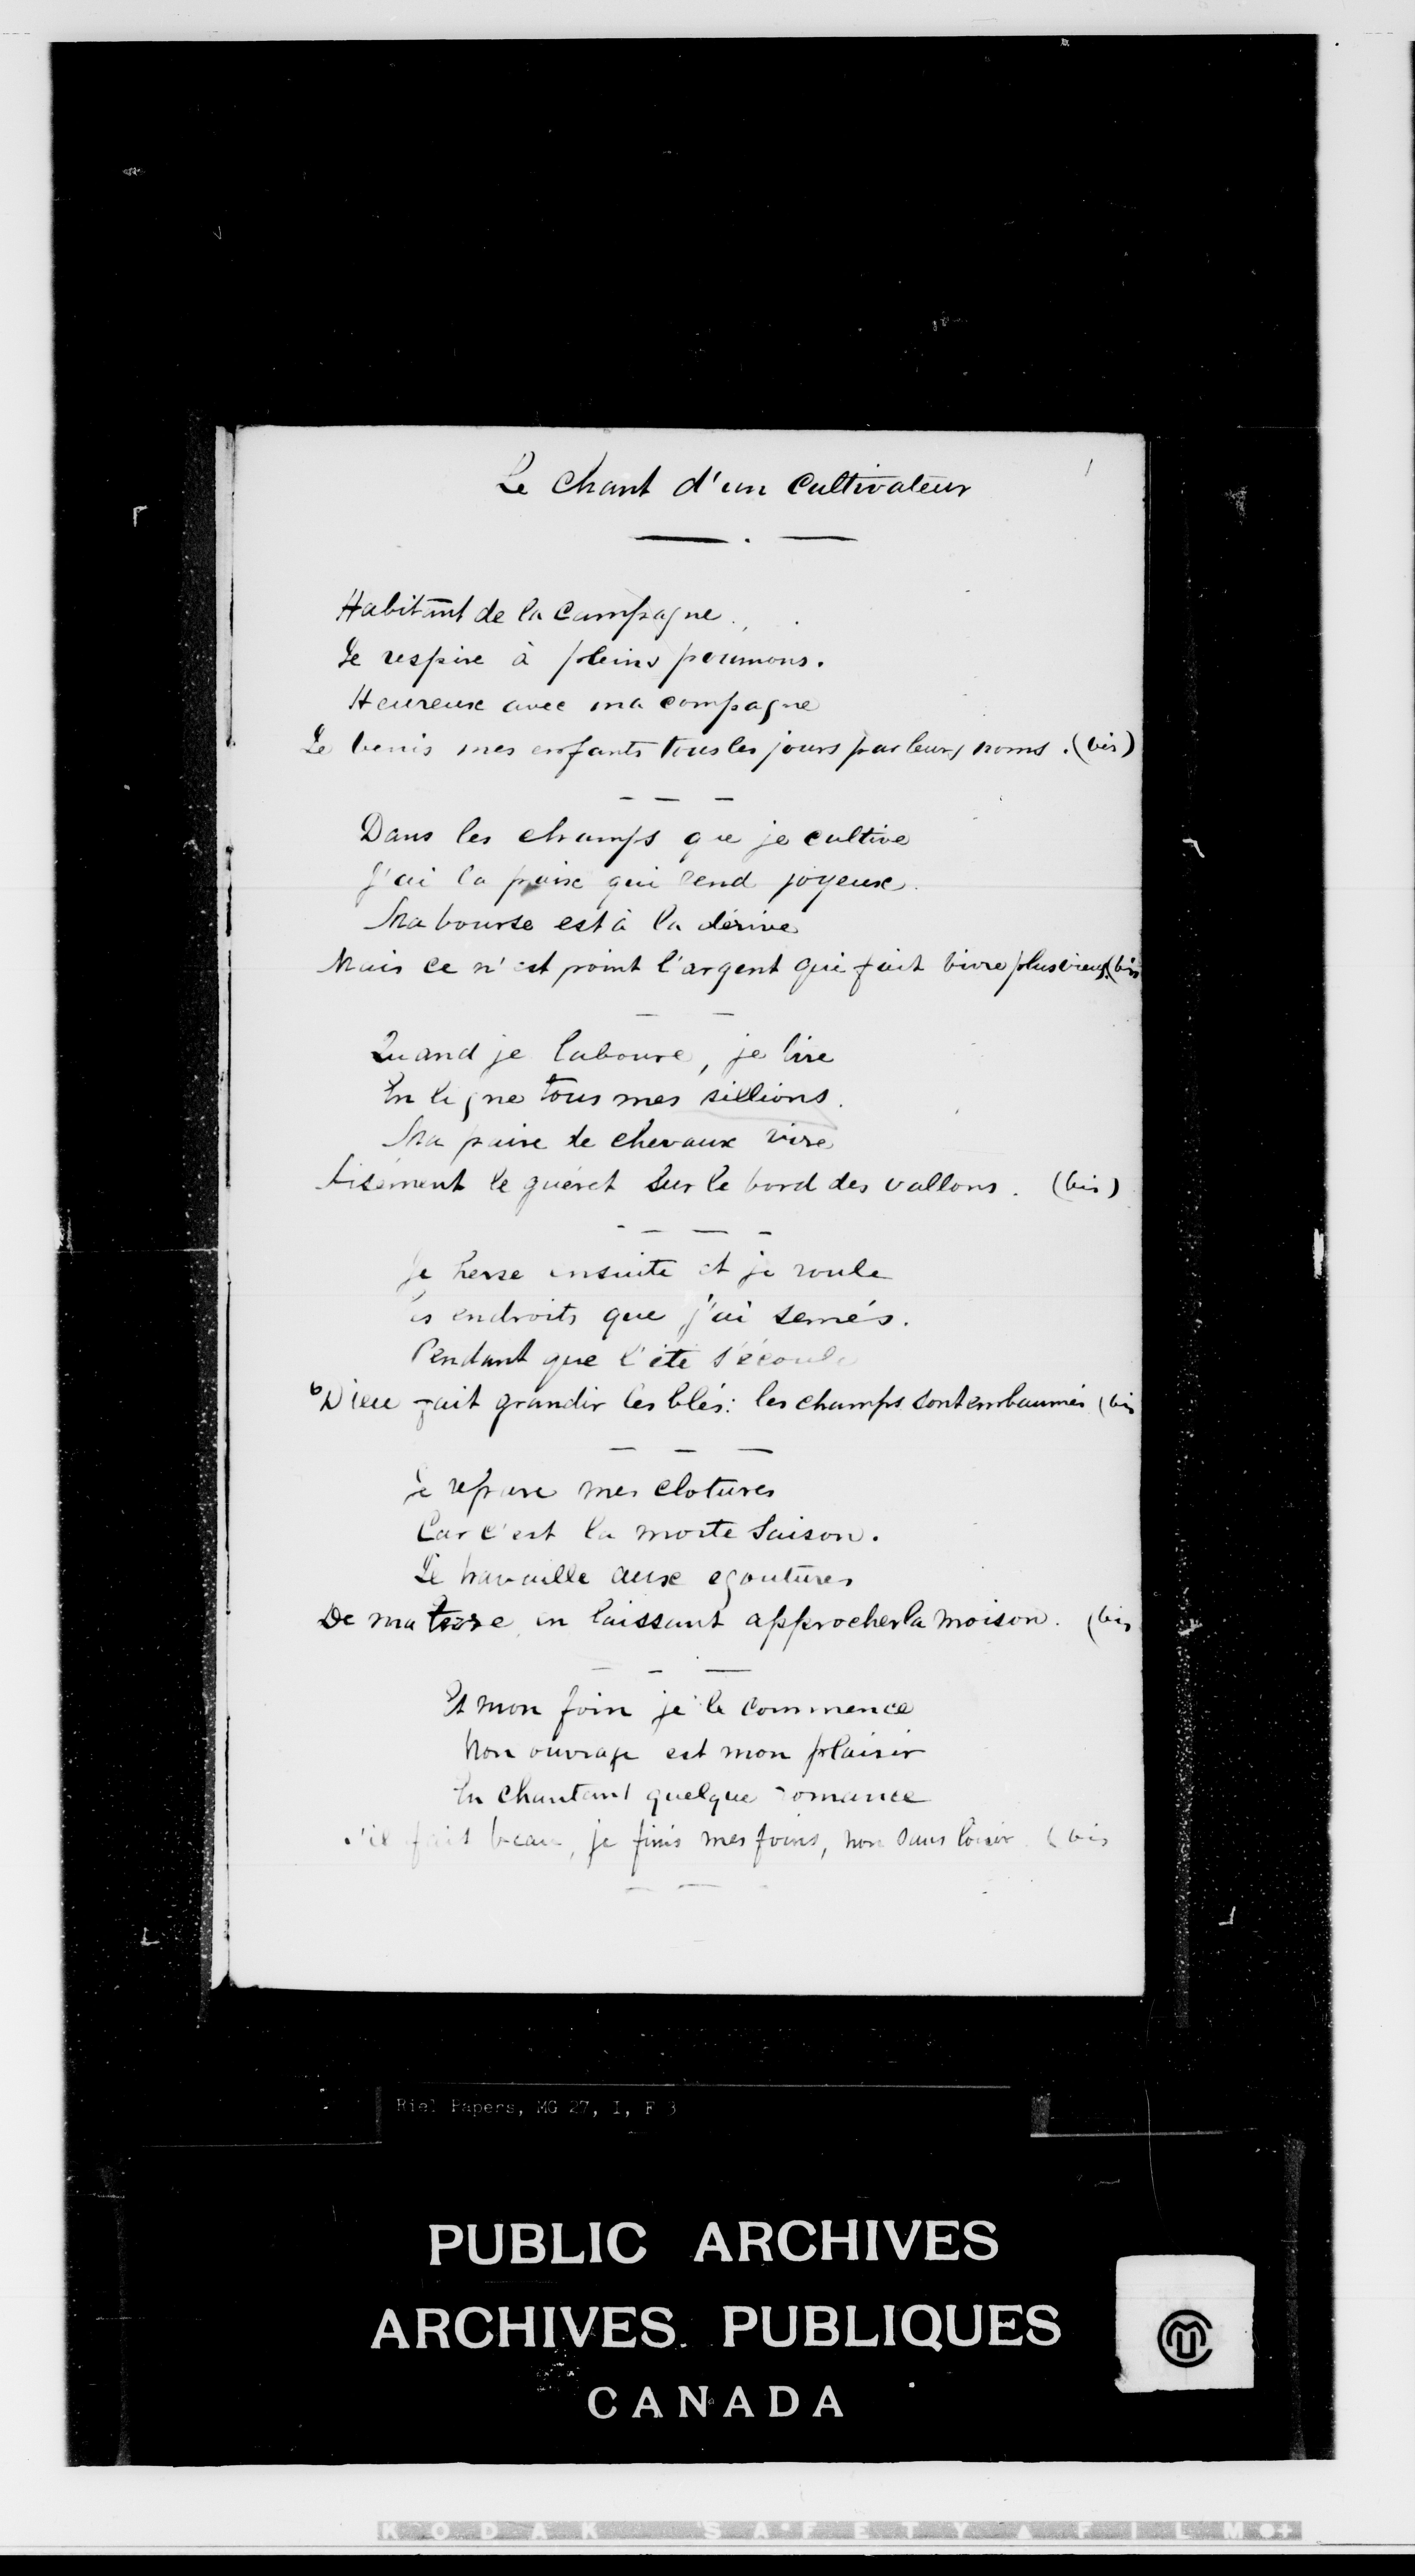 1
Le chant d'un cultivateur
Habitant de la campagne.
Je respire à pleins poumons.
Heureux avec ma compagne
Je benis mes enfants tous les jours par leurs noms. (bis)
Dans les champs que je cultive
J'ai la paix qui rend joyeux.
Ma bourse est à la dérive
Mais ce n'est point l'argent qui fait vivre plus vieux. (bis
Quand je laboure, je tire
En ligne tous mes sillions.
Ma paire de chevaux vire
Aisément le guéret sur le bord des vallons. (bis)
Je herse ensuite et je roule
es endroits que j'ai semés.
Pendant que l'été s'écoule
Dieu fait grandir les blés: les champs sont embaumés (bis
Je repare mes clotures
Car c'est la morte saison.
Je travaille aux egoutures
De ma terre en laissant approcher la moison. (bis
Et mon foin je le commence
Mon ouvrage est mon plaisir
En chantant quelque romance
S'il fait beau, je finis mes foins, non sans loisir (bis
Riel Papers, MG 27, I, F 3
PUBLIC ARCHIVES
ARCHIVES PUBLIQUES
CANADA
KODAK SAFETY FILM